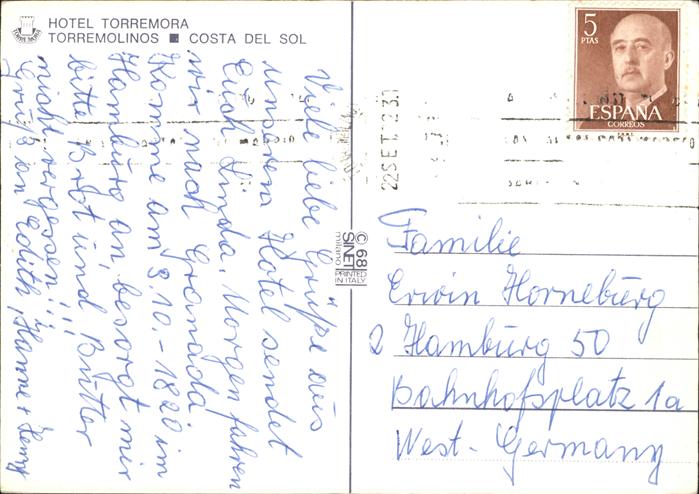 HOTEL TORREMORA
TORREMOLINOS ■ COSTA DEL SOL
TORRE MORA
Viele liebe Grüße aus
unserem Hotel sendet
Euch Linda. Morgen fahren
wir nach Granada.
Komme am 8.10. - 1820 im
Hamburg an, besorgt mir
bitte Brot und Butter
nicht vergessen!!!
Gruß an Edith, Hanne +
© 68
SINET
milano
PRINTED
IN ITALY
5
PTAS
ESPAÑA
CORREOS
22 SET
Familie
Erwin Horneburg
2 Hamburg 50
Bahnhofsplatz 1a
West-Germany